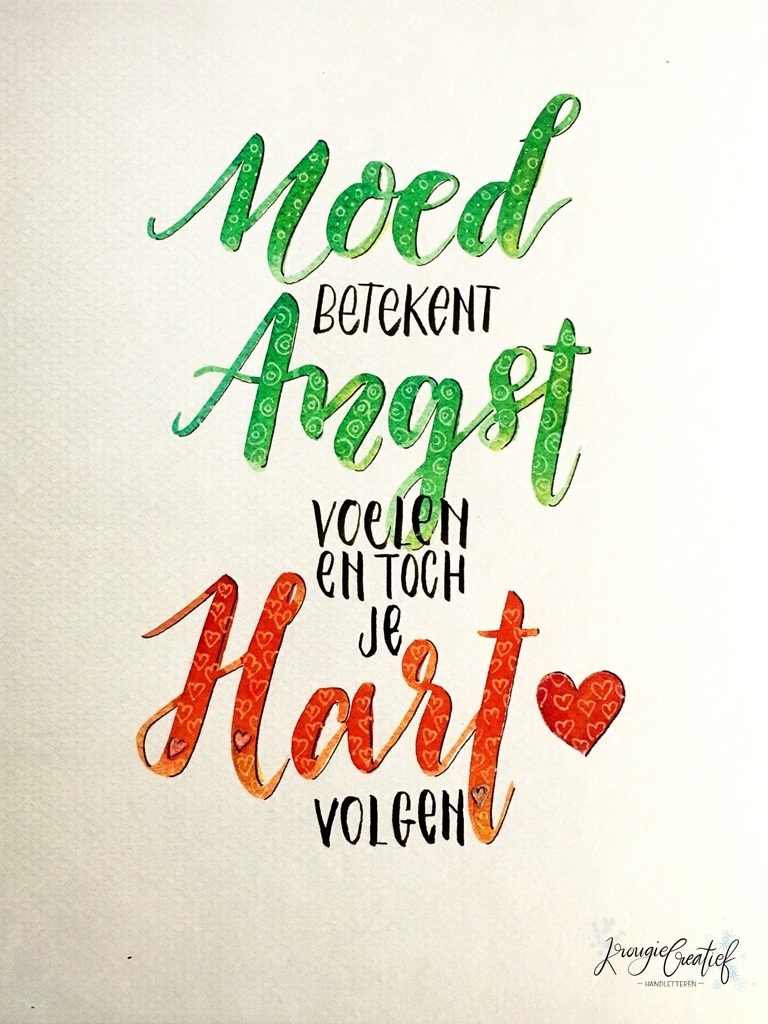 Moed
BETEKENT
Angst
VOELEN
EN TOCH
JE
Hart
VOLGEN
KrougieCreatief
— HANDLETTEREN —